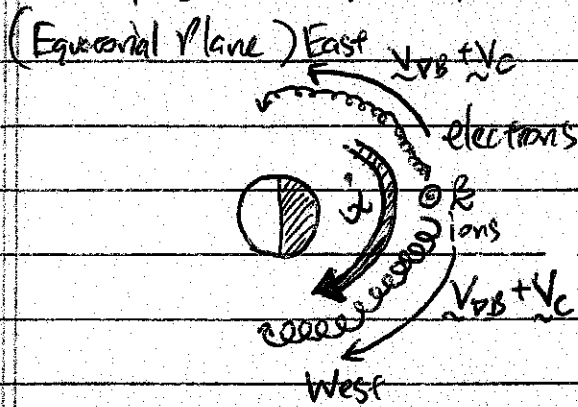 (Equatorial Plane) East
V∇B + Vc
electrons
B
j
ions
V∇B + Vc
West